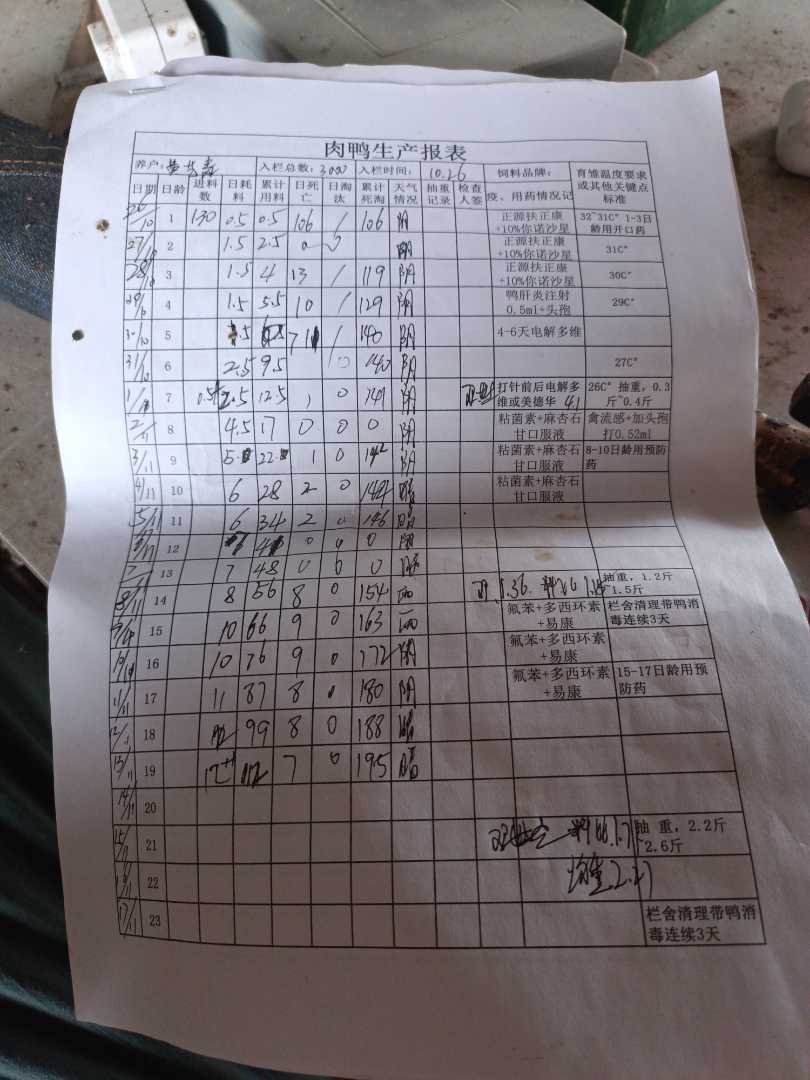 肉鸭生产报表
养户: 入栏总数: 3000 入栏时间: 10.26 饲料品牌: 育雏温度要求或其他关键点标准
日期 日龄 进料数 日耗料 累计用料 日死亡 日淘汰 累计死淘 天气情况 抽重记录 检查人签 疫、用药情况记
26/10 1 130 0.5 0.5 106 / 106 阴 正源扶正康+10%你诺沙星 32~31C° 1-3日龄用开口药
27/ 2 1.5 2.5 0 阴 正源扶正康+10%你诺沙星 31C°
28/ 3 1.5 4 13 / 119 阴 正源扶正康+10%你诺沙星 30C°
29/ 4 1.5 5.5 10 / 129 阴 鸭肝炎注射0.5ml+头孢 29C°
30/10 5 / 140 阴 4-6天电解多维
31/10 6 2.5 9.5 0 140 阴 27C°
1/ 7 2.5 12.5 1 0 141 阴 打针前后电解多维或美德华 41 26C° 抽重, 0.3斤~0.4斤
2/11 8 4.5 17 0 0 0 阴 粘菌素+麻杏石甘口服液 禽流感+加头孢打0.52ml
3/11 9 1 0 142 阴 粘菌素+麻杏石甘口服液 8-10日龄用预防药
4/11 10 6 28 2 0 144 晴 粘菌素+麻杏石甘口服液
5/11 11 6 34 2 0 146 晴
12 0 0 0 阴
7/ 13 7 48 0 0 0
8/11 14 8 56 8 0 154 雨 抽重, 1.2斤~1.5斤
15 10 66 9 0 163 雨 氟苯+多西环素+易康 栏舍清理带鸭消毒连续3天
10/ 16 10 76 9 0 172 阴 氟苯+多西环素+易康
11/11 17 11 87 8 0 180 阴 氟苯+多西环素+易康 15-17日龄用预防药
12/11 18 12 99 8 0 188 晴
13/11 19 12+1 112 7 0 195 晴
14/11 20
15/ 21 料比1.71 抽 重, 2.2斤~2.6斤
22 均重2.27
17/11 23 栏舍清理带鸭消毒连续3天